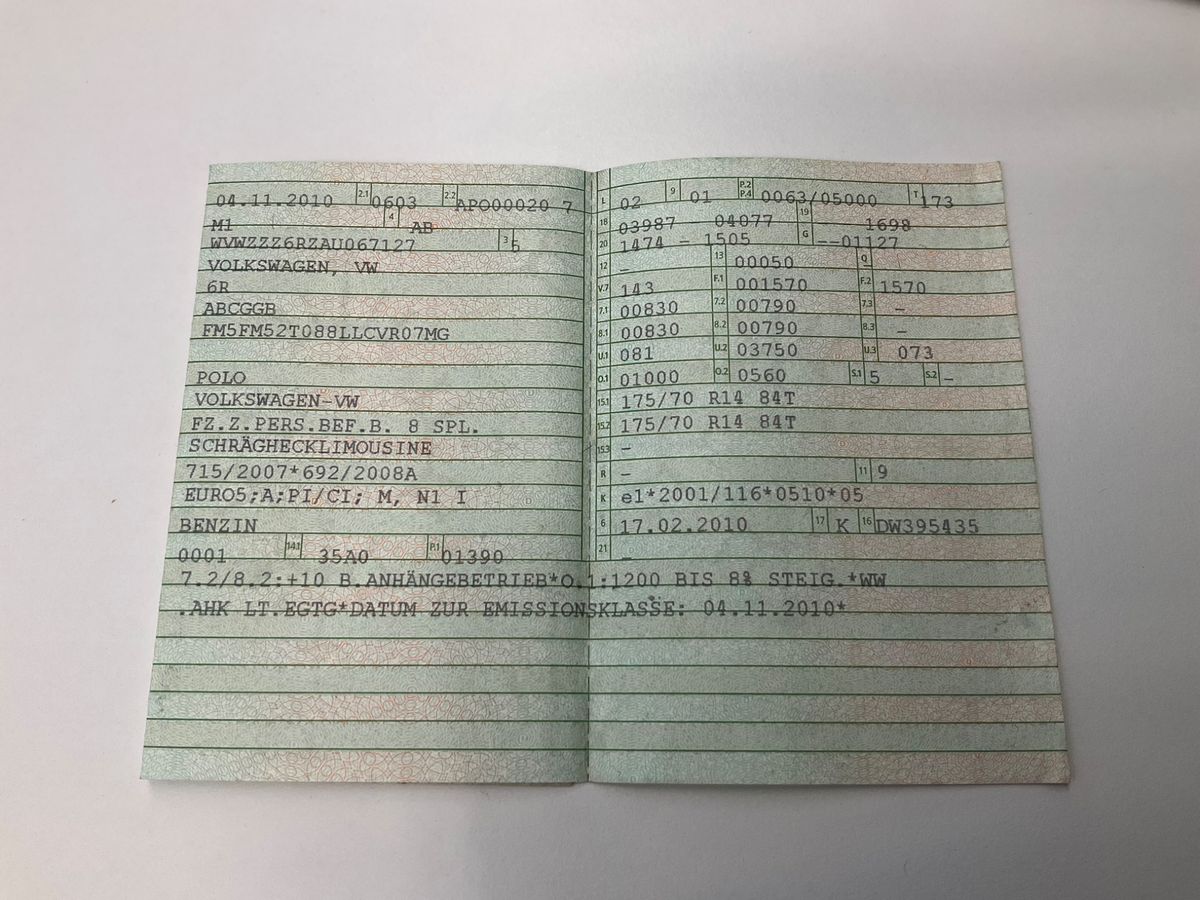 04.11.2010 2.1 0603 2.2 APO00020 7
M1 4 AB
WVWZZZ6RZAU067127 3 5
VOLKSWAGEN, VW
6R
ABCGGB
FM5FM52T088LLCVR07MG
POLO
VOLKSWAGEN-VW
FZ.Z.PERS.BEF.B. 8 SPL.
SCHRÄGHECKLIMOUSINE
715/2007*692/2008A
EURO5;A;PI/CI; M, N1 I
BENZIN
0001 14.1 35A0 P.1 01390
L 02 9 01 P.2 P.4 0063/05000 T 173
18 03987 04077 19 1698
20 1474 - 1505 G --01127
12 - 13 00050 Q -
V.7 143 F.1 001570 F.2 1570
7.1 00830 7.2 00790 7.3 -
8.1 00830 8.2 00790 8.3 -
U.1 081 U.2 03750 U.3 073
O.1 01000 O.2 0560 S.1 5 S.2 -
15.1 175/70 R14 84T
15.2 175/70 R14 84T
15.3 -
R - 11 9
K e1*2001/116*0510*05
6 17.02.2010 17 K 16 DW395435
21 -
7.2/8.2:+10 B.ANHÄNGEBETRIEB*O.1:1200 BIS 8% STEIG.*WW
.AHK LT.EGTG*DATUM ZUR EMISSIONSKLASSE: 04.11.2010*